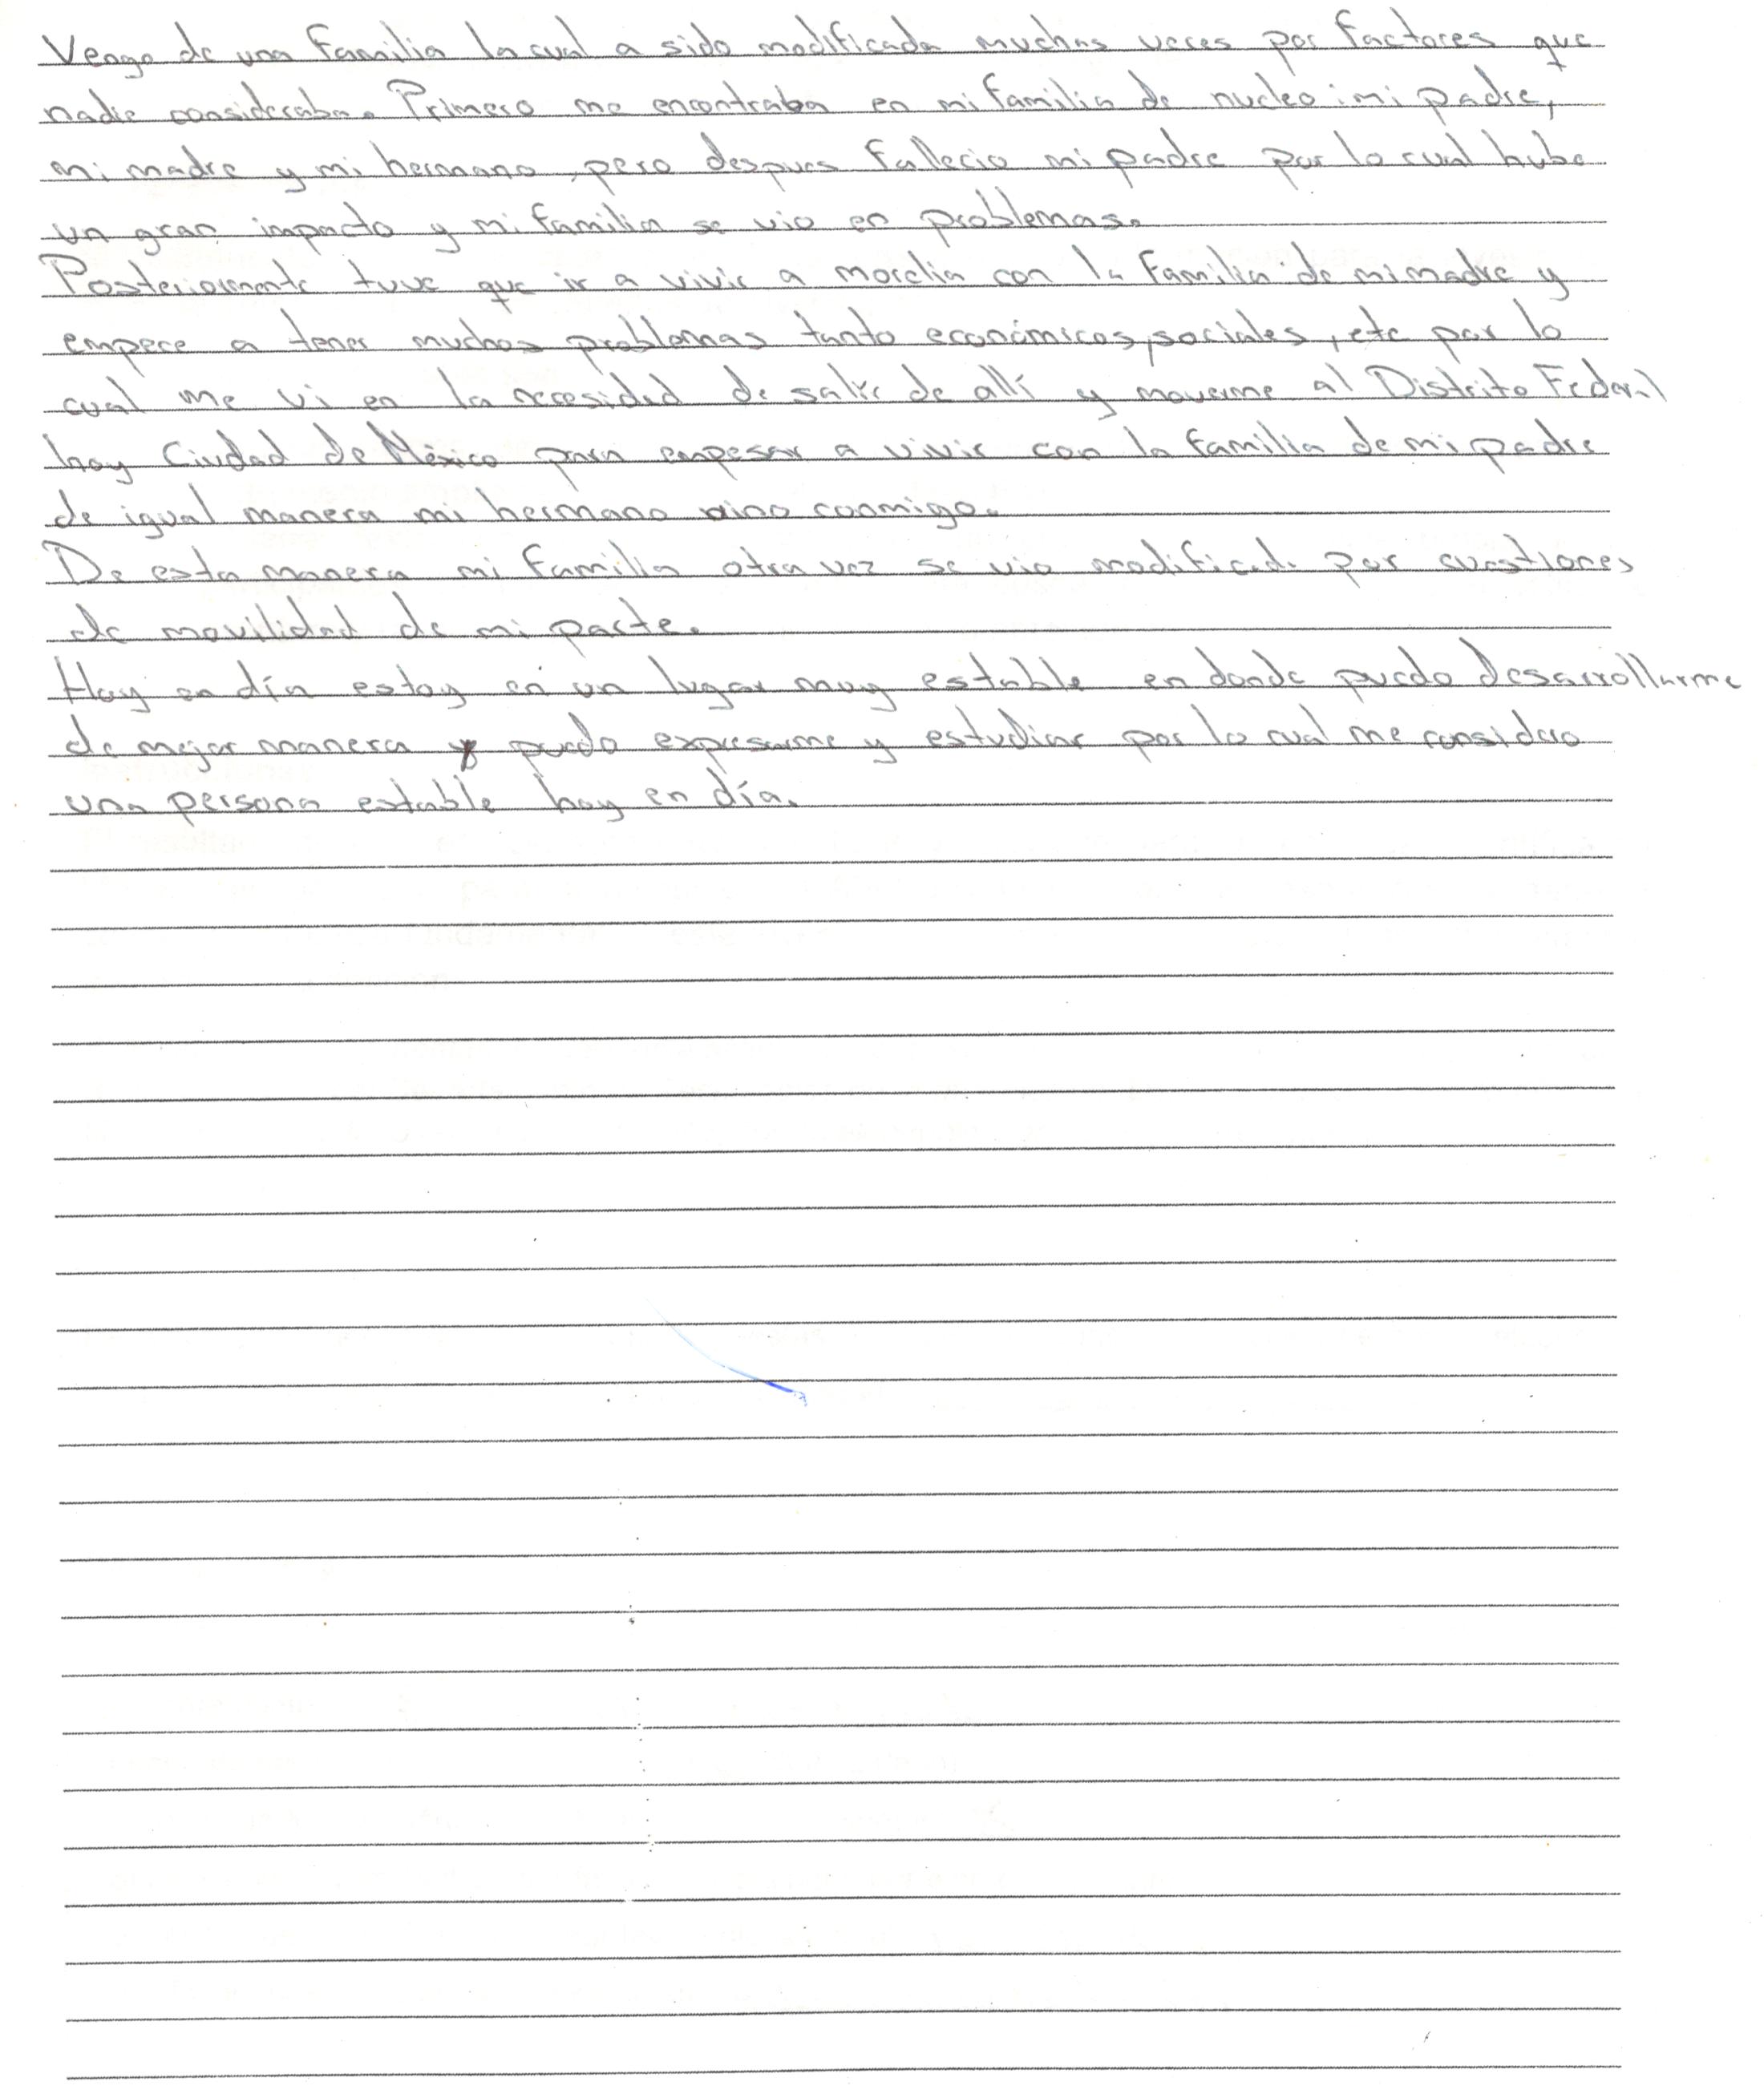 Vengo de una familia la cual a sido modificada muchas veces por factores que
nadie consideraba. Primero me encontraba en mi familia de nucleo: mi padre,
mi madre y mi hermano, pero despues fallecio mi padre por lo cual hubo
un gran impacto y mi familia se vio en problemas.
Posteriormente tuve que ir a vivir a morelia con la familia de mi madre y
empece a tener muchos problemas tanto económicos, sociales, etc por lo
cual me vi en la necesidad de salir de allí y moverme al Distrito Federal
hoy Ciudad de México para empesar a vivir con la familia de mi padre
de igual manera mi hermano vino conmigo.
De esta manera mi familia otra vez se vio modificada por cuestiones
de movilidad de mi parte.
Hoy en día estoy en un lugar muy estable en donde puedo desarrollarme
de mejor manera y puedo expresarme y estudiar por lo cual me considero
una persona estable hoy en día.